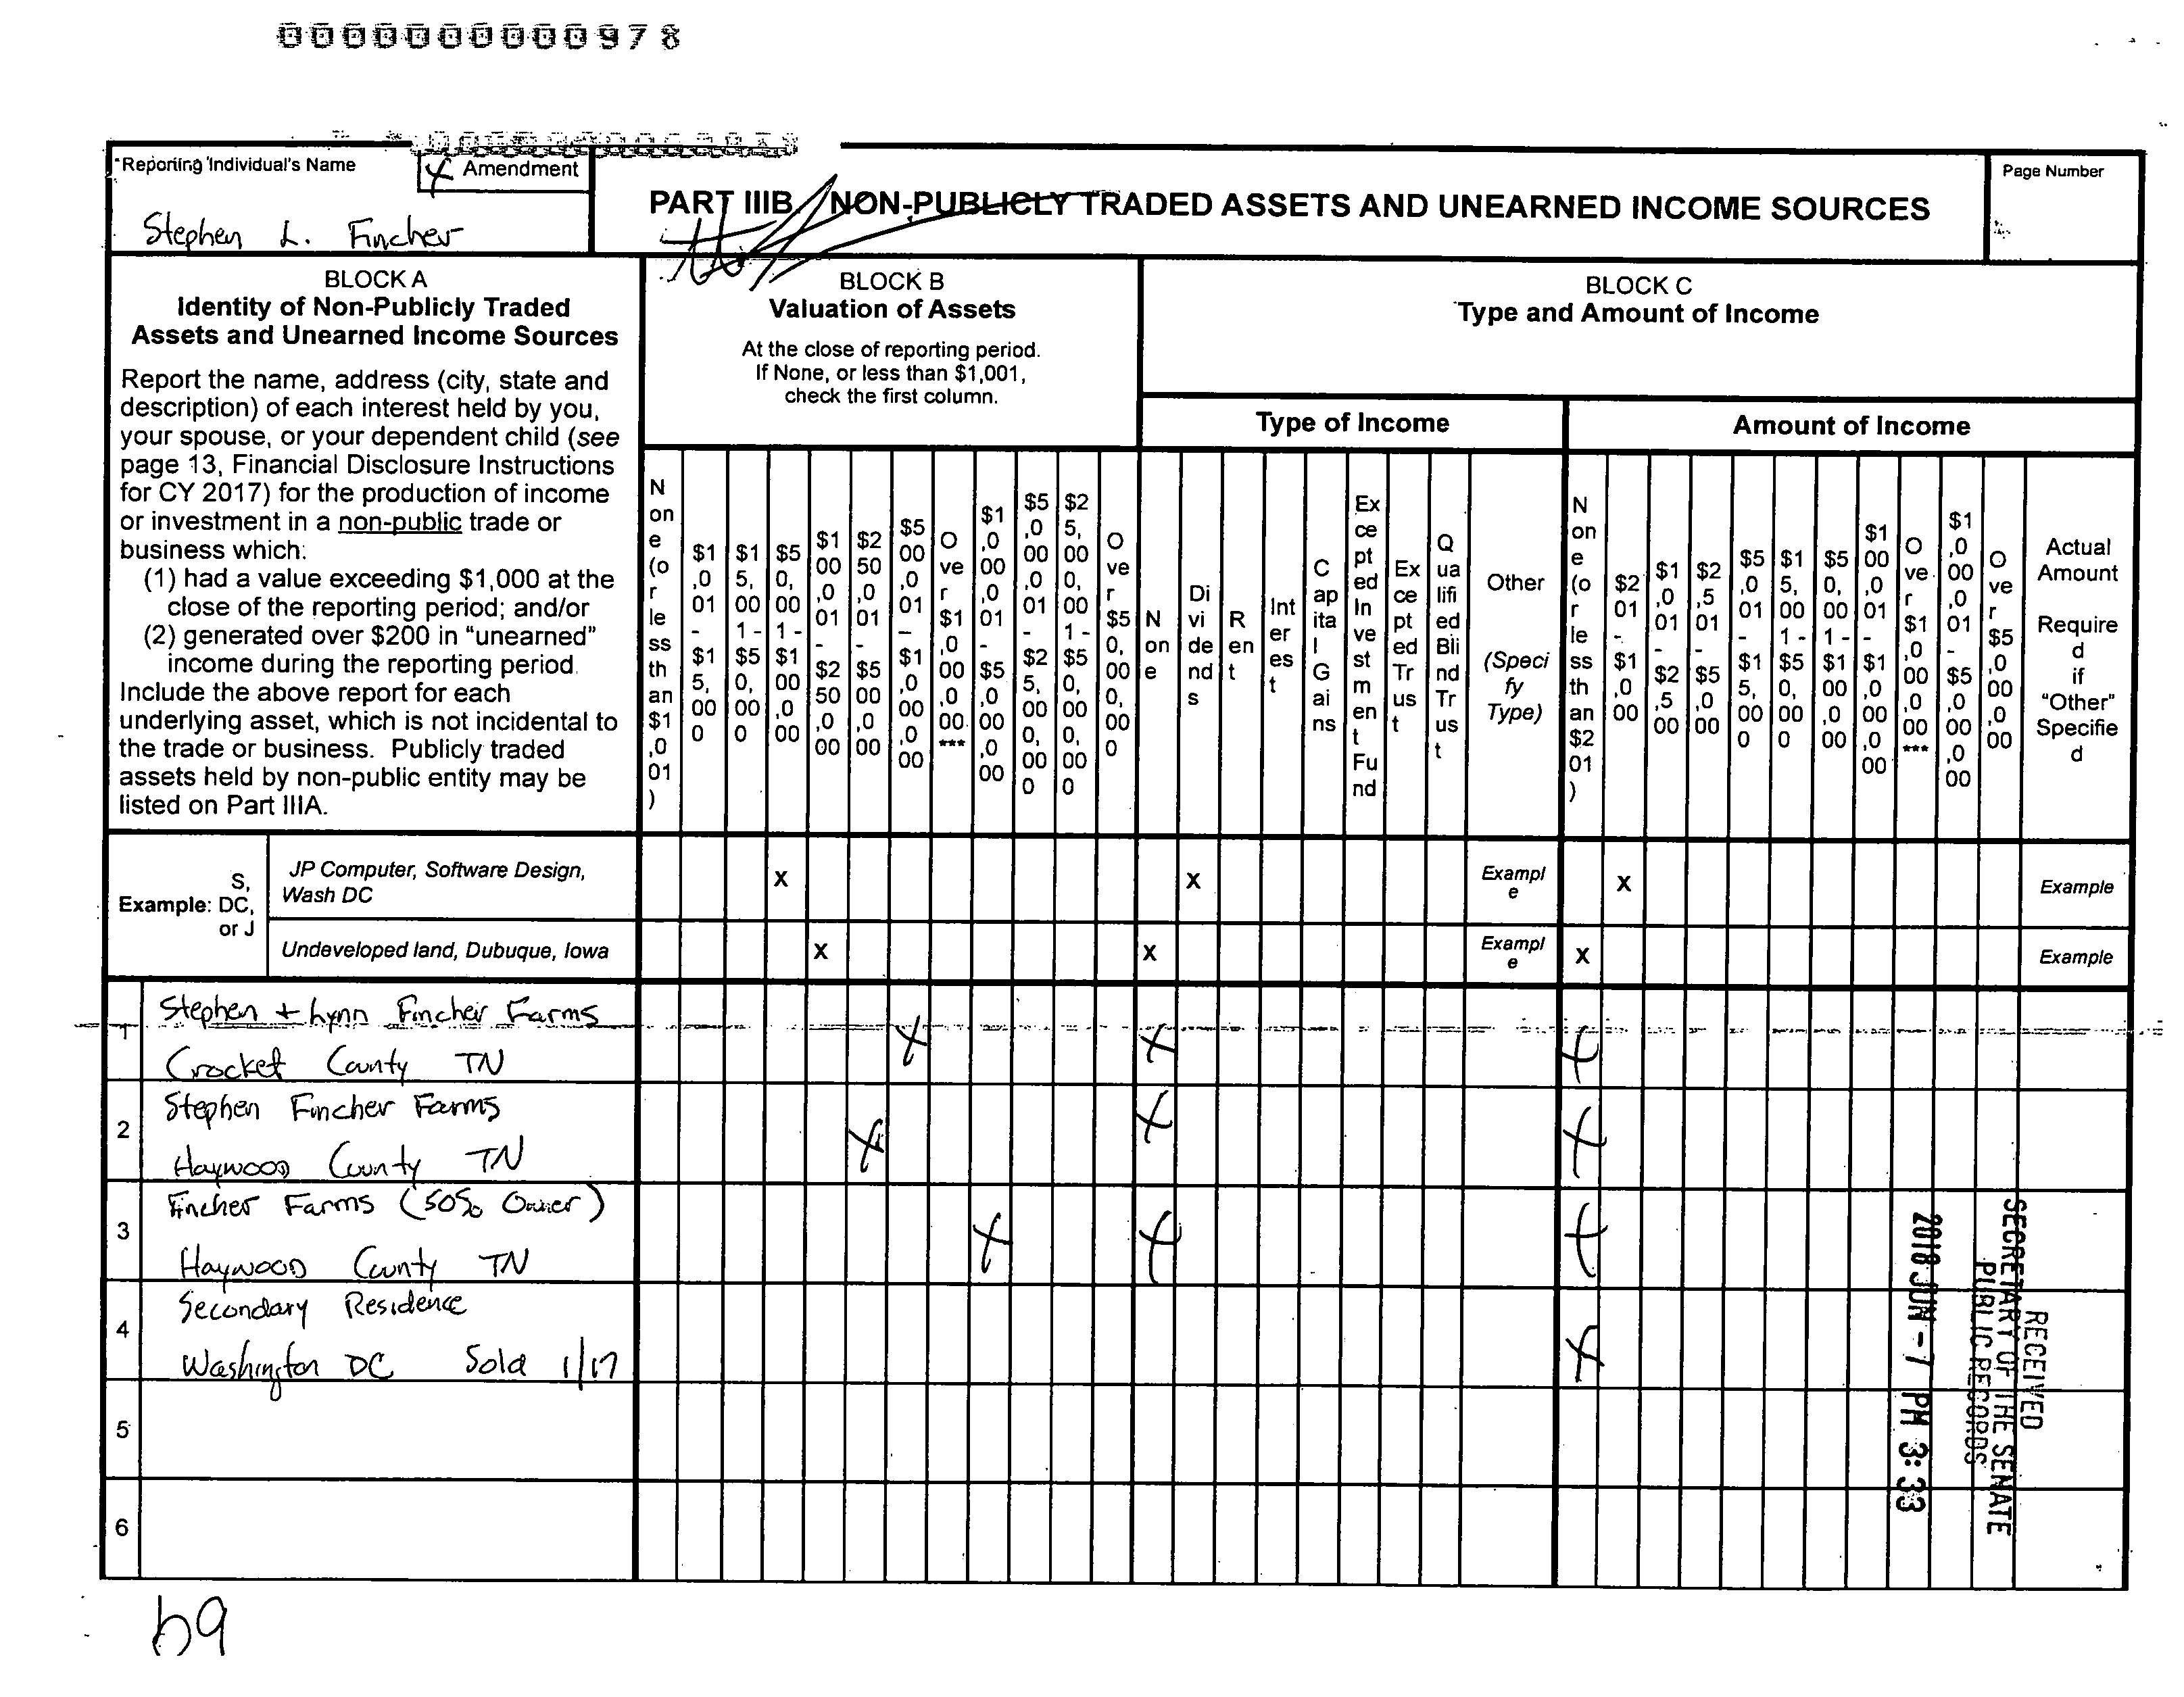 000000000978
Reporting Individual's Name
X Amendment
Stephen L. Fincher
PART IIIB NON-PUBLICLY TRADED ASSETS AND UNEARNED INCOME SOURCES
Page Number
BLOCK A
Identity of Non-Publicly Traded
Assets and Unearned Income Sources
Report the name, address (city, state and
description) of each interest held by you,
your spouse, or your dependent child (see
page 13, Financial Disclosure Instructions
for CY 2017) for the production of income
or investment in a non-public trade or
business which:
(1) had a value exceeding $1,000 at the
close of the reporting period; and/or
(2) generated over $200 in “unearned”
income during the reporting period.
Include the above report for each
underlying asset, which is not incidental to
the trade or business. Publicly traded
assets held by non-public entity may be
listed on Part IIIA.
BLOCK B
Valuation of Assets
At the close of reporting period.
If None, or less than $1,001,
check the first column.
None (or less than $1,001)
$1,001 - $15,000
$15,001 - $50,000
$50,001 - $100,000
$100,001 - $250,000
$250,001 - $500,000
$500,001 – $1,000,000
Over $1,000,000***
$1,000,001 - $5,000,000
$5,000,001 - $25,000,000
$25,000,001 - $50,000,000
Over $50,000,000
BLOCK C
Type and Amount of Income
Type of Income
None
Dividends
Rent
Interest
Capital Gains
Excepted Investment Fund
Excepted Trust
Qualified Blind Trust
Other
(Specify Type)
Amount of Income
None (or less than $201)
$201 - $1,000
$1,001 - $2,500
$2,501 - $5,000
$5,001 - $15,000
$15,001 - $50,000
$50,001 - $100,000
$100,001 - $1,000,000
Over $1,000,000***
$1,000,001 - $5,000,000
Over $5,000,000
Actual
Amount
Require
d
if
“Other”
Specifie
d
Example: S, DC, or J
JP Computer, Software Design,
Wash DC
X X Example X Example
Undeveloped land, Dubuque, Iowa X X Example X Example
1
Stephen + Lynn Fincher Farms
Crocket County TN
X X X
2
Stephen Fincher Farms
Haywood County TN
X X X
3
Fincher Farms (50% Owner)
Haywood County TN
X X X
4
Secondary Residence
Washington DC Sold 1/17
X
5
6
RECEIVED
SECRETARY OF THE SENATE
PUBLIC RECORDS
2018 JUN -7 PM 3:33